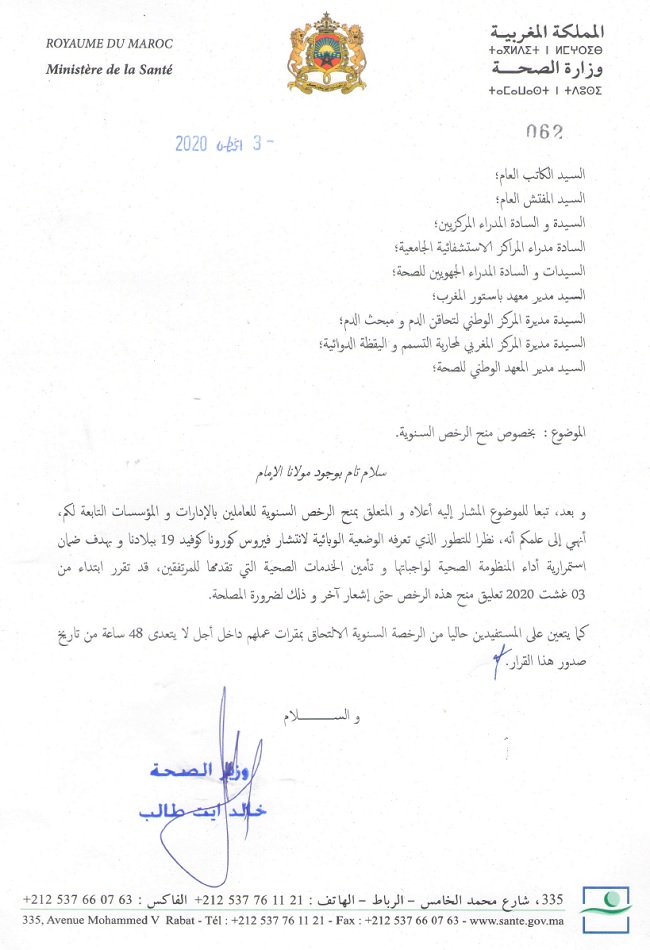 ROYAUME DU MAROC
Ministère de la Santé
المملكة المغربية
ⵜⴰⴳⵍⴷⵉⵜ ⵏ ⵍⵎⵖⵔⵉⴱ
وزارة الصحة
ⵜⴰⵎⴰⵡⴰⵙⵜ ⵏ ⵜⴷⵓⵙⵉ
062
3 - غشت 2020
السيد الكاتب العام؛
السيد المفتش العام؛
السيدة و السادة المدراء المركزيين؛
السادة مدراء المراكز الاستشفائية الجامعية؛
السيدات و السادة المدراء الجهويين للصحة؛
السيد مدير معهد باستور المغرب؛
السيدة مديرة المركز الوطني لتحاقن الدم و مبحث الدم؛
السيدة مديرة المركز المغربي لمحاربة التسمم و اليقظة الدوائية؛
السيد مدير المعهد الوطني للصحة؛
الموضوع : بخصوص منح الرخص السنوية.
سلام تام بوجود مولانا الإمام
و بعد، تبعا للموضوع المشار إليه أعلاه و المتعلق بمنح الرخص السنوية للعاملين بالإدارات و المؤسسات التابعة لكم،
أنهي إلى علمكم أنه، نظرا للتطور الذي تعرفه الوضعية الوبائية لانتشار فيروس كورونا كوفيد 19 ببلادنا و بهدف ضمان
استمرارية أداء المنظومة الصحية لواجباتها و تأمين الخدمات الصحية التي تقدمها للمرتفقين، قد تقرر ابتداء من
03 غشت 2020 تعليق منح هذه الرخص حتى إشعار آخر و ذلك لضرورة المصلحة.
كما يتعين على المستفيدين حاليا من الرخصة السنوية الالتحاق بمقرات عملهم داخل أجل لا يتعدى 48 ساعة من تاريخ
صدور هذا القرار.
و الســـــــلام
وزير الصحة
خالد ايت طالب
335، شارع محمد الخامس – الرباط – الهاتف : 21 11 76 537 212+ الفاكس : 63 07 66 537 212+
335, Avenue Mohammed V Rabat - Tél : +212 537 76 11 21 - Fax : +212 537 66 07 63 - www.sante.gov.ma